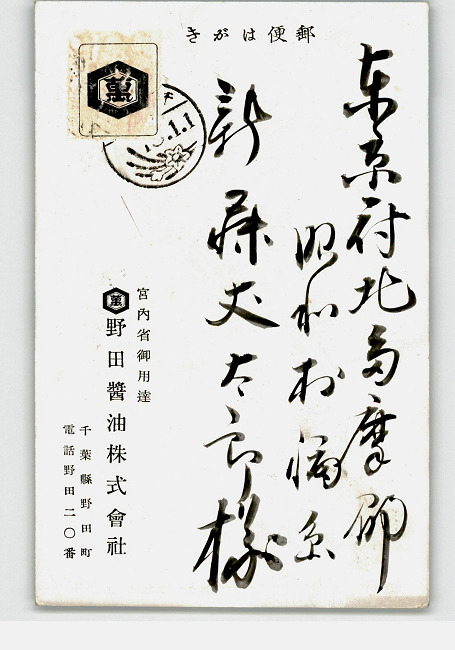 郵便はがき
東京府北多摩郡
昭和村福島
新藤丈太郎様
萬
1.1
宮内省御用達
萬
野田醬油株式會社
千葉縣野田町
電話野田二〇番